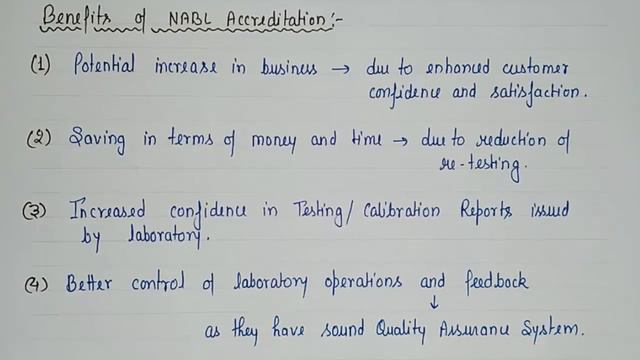 Benefits of NABL Accreditation:-
(1) Potential increase in business → due to enhanced customer
confidence and satisfaction.
(2) Saving in terms of money and time → due to reduction of
re-testing.
(3) Increased confidence in Testing/Calibration Reports issued
by laboratory.
(4) Better control of laboratory operations and feedback
↓
as they have sound Quality Assurance System.